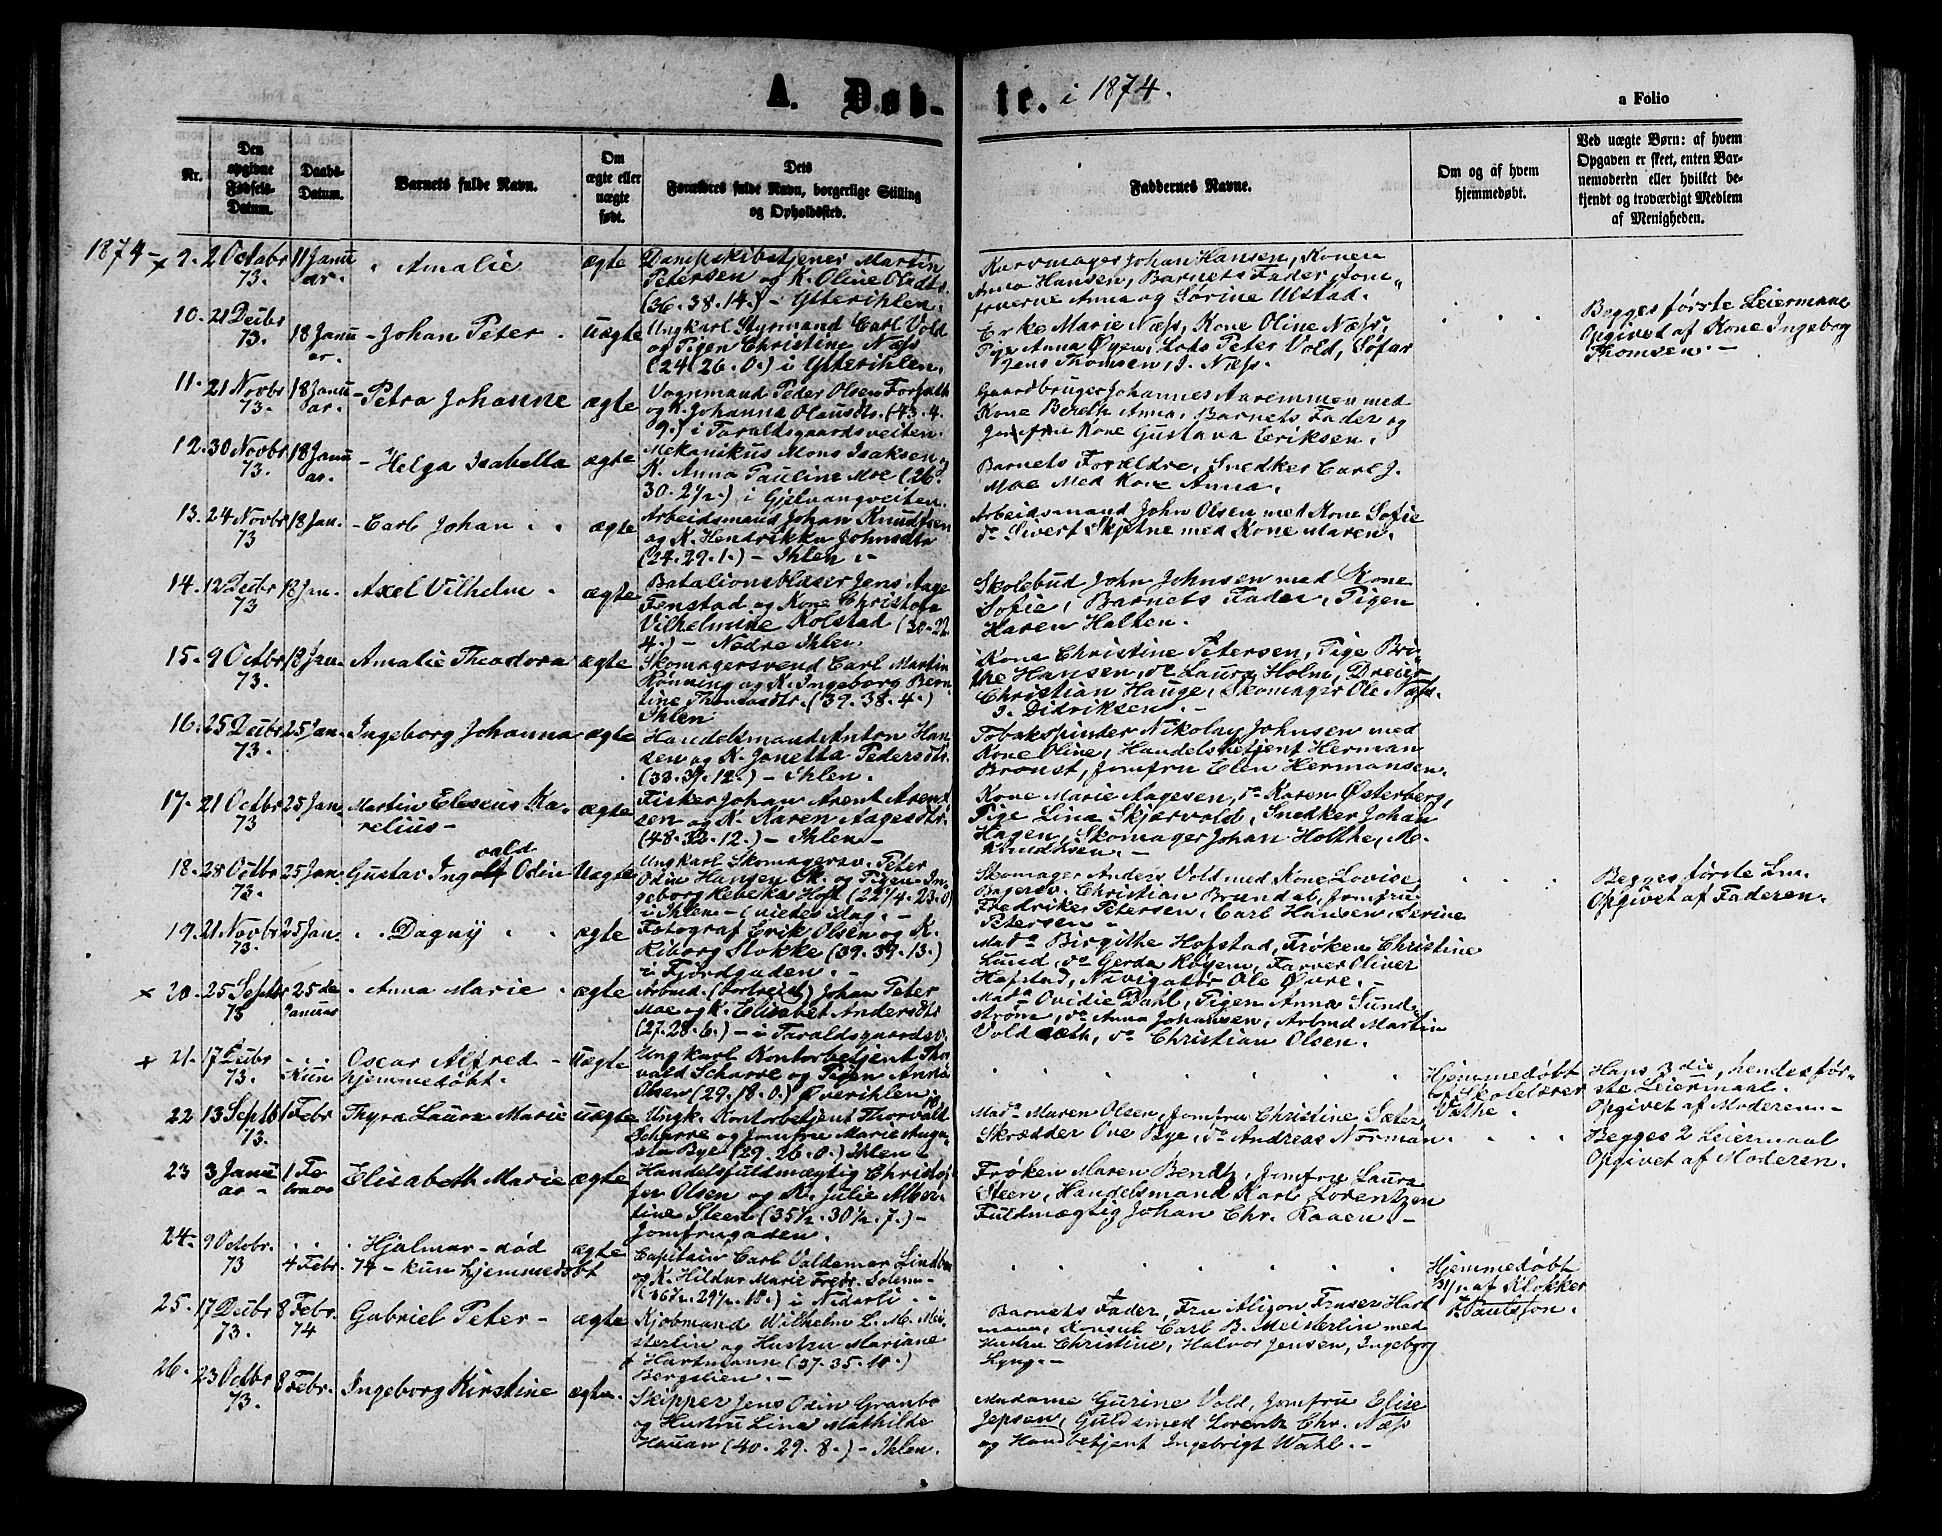 A. Døb-
te. i 1874.
a Folio
Nr.
Den
opgivne
Fødsels-
Datum.
Daabs-
Datum.
Barnets fulde Navn.
Om
ægte eller
uægte
født.
Dets
Forældres fulde Navn, borgerlige Stilling
og Opholdssted.
Faddernes Navne.
Om og af hvem
hjemmedøbt.
Ved uægte Børn: af hvem
Opgaven er skeet, enten Bar-
nemoderen eller hvilket be-
kjendt og troværdigt Medlem
af Menigheden.
1874 - x 9. 2 Octobr 73. 11 Januar. Amalie ægte
Dampskibstjener Martin
Petersen og K. Oline
(36. 38. 14.) - Ytterihlen.
Johan Hansen, Konen
Anna Hansen, Barnets Fader, Jom-
fruerne Anna og Sørine Ulstad.
10. 21 Decbr 73. 18 Januar. - Johan Peter uægte
Ungkarl Styrmand Carl Vold
og Pigen Christine Næss
(24. 26. 0.) i Ytterihlen.
Enke Marie Næss, Kone Oline Næss,
Pige Anna Øyen, Lods Peter Vold, Søfar
Jens Thomsen, J. Næss.
Begges første Leiermaal
Opgivet af Kone Ingeborg
Thomsen. -
11. 21 Novbr 73. 18 Januar. - Petra Johanne ægte
Vognmand Peder Olsen
og K. Johanna Olausdtr. (43. 4
9.) i Taraldsgaardsveiten.
Gaardbruger Johannes Aaremmen med
Kone Bereth Anna, Barnets Fader og
Kone Gustava Eriksen.
12. 30 Novbr 73. 18 Januar. - Helga Isabella ægte
Mekanikus Mons Isaksen,
K. Anna Pauline Moe (26.
30. 2 1/2.) i Gjelvangveiten.
Barnets Forældre, Snedker Carl J.
Moe med Kone Anna.
13. 24 Novbr 73 18 Jan. - Carl Johan ægte
Arbeidsmand Johan Knudsen
og K. Hendrikka Johnsdtr
(24. 29. 1.) - Ihlen. -
Arbeidsmand John Olsen med Kone Sofie
do Sivert Skjetne med Kone Maren.
14. 12 Decbr 73 18 Jan. - Axel Vilhelm ægte
Batalionsblæser Jens Aage
Fenstad og Kone Christofa
Vilhelmine Rolstad (30. 22
4.) - Nedre Ihlen.
Skolebud John Johnsen med Kone
Sofie, Barnets Fader, Pigen
Maren Halten.
15. 9 Octbr 73. 18 Jan. Amalie Theodora ægte
Skomagersvend Carl Martin
Rønning og K. Ingeborg Bern-
tine Thomasdtr. (39. 38. 4.)
Ihlen
Kone Christine Petersen, Pige Bri-
the Hansen, do Laura Holm, Dreier
Christian Hauge, Skomager Ole Næss.
J. Didriksen. -
16. 25 Decbr 73. 25 Jan. Ingeborg Johanna ægte
Handelsmand Anton Han-
sen og K. Jonetta Pedersdtr.
(33. 37. 12.) - Ihlen.
Tobakspinder Nikolay Johnsen med
Kone Oline, Handelsbetjent Herman
Bronst, Jomfru Elen Hermansen.
17. 21 Octbr 73 25 Jan. Martin Eliseus Ka-
relius - ægte
Fisker Johan Arent Arent-
sen og K. Karen Aagesdtr.
(48. 32. 12.) - Ihlen -
Kone Marie Aagesen, do Karen Østerberg,
Pige Lina Skjærvold, Snedker Johan
Hagen, Skomager Johan Holthe, M.
Knudtsen. -
18. 28 Octbr 73. 25 Jan. Gustav Ingolf vald Odin uægte
Ungkarl Skomagersv. Peter
Odin Hansen og Pigen In-
geborg Rebeka Hoff (22 1/4. 23. 0)
i Ihlen - (viedes idag. -
Skomager Anders Vold med Kone Lovise
Bagersv. Christian Brundal, Jomfru
Fredrikke Petersen, Carl Hansen, Serine
Petersen -
Begges første Lm.
Opgivet af Faderen.
19. 21 Novbr 73. 25 Jan. Dagny ægte
Fotograf Erik Olsen og K.
Riborg Stokke (39. 39. 13.)
i Fjordgaden. -
Mada Birgithe Hofstad, Frøken Christine
Lund, do Gerda Røyem, Farver Oliver
Hofstad, Navigatør Ole Øvre. -
x 20. 25 Septbr 73 25de Januar Anna Marie ægte
Arbmd. Johan Peter
Moe og K. Elisabet Andersdtr
(27. 28. 6.) - i Taraldsgaardsv.
Mada Ovidie Dahl, Pigen Anna Sunde
strøm, do Anna Johansen, Arbmd Martin
Voldsæth, do Christian Olsen.
x 21. 17 Decbr 73. Kun Oscar Alfred - uægte
hjemmedøbt.
Ungkarl Kontorbetjent Thor-
vald Scharre og Pigen Anna
Olsen (29. 18. 0.) Øverihlen
Hjemmedøbt
af Skolelærer
Vethe.
Hans 3die, hendes før-
ste Leiermaal.
Opgivet af Moderen. -
22 13 Septb 73. 1 Febr Thyra Laura Marie uægte
Ungk. Kontorbetjent Thorvald
Scharre og Jomfru Marie Augu-
sta Bye (29. 26. 0.) Ihlen -
Mada Maren Olsen, Jomfru Christine Sæter,
Skrædder Ove Bye, do Andreas Norman.
Begges 2 Leiermaal
Opgivet af Moderen.
23 3 Januar - 1 Februar Elisabeth Marie ægte
Handelsfuldmægtig Christof-
fer Olsen og K. Julie Alber-
tine Steen (35 1/2. 30 1/2. 7.) -
Jomfrugaden.
Frøken Maren Bendtz, Jomfru Laura
Steen, Handelsmand Karl Lorentzen
Fuldmægtig Johan Chr. Raaen. -
24. 9 Octobr. 73 4 Febr. Hjalmar - død ægte
74 - kun hjemmedøbt
Capitain Carl Valdemar
og K. Hildur Marie Fredr.
(36 1/2. 29 1/2. 10.) i Nidarli. -
Hjemmedøbt
3/1. af Klokker
Paulsson.
25. 17 Decbr 73. 8 Febr. 74 Gabriel Peter - ægte
Kjøbmand Wilhelm L. M. Mei-
sterlin og Hustru Mariane
f Hartmann (37. 35. 10.)
Bergslien. -
Barnets Fader, Fru Alison Fraser Hart
mann, Konsul Carl B. Meisterlin med
Hustru Christine, Halvor Jensen, Ingeborg
Lyng. -
26. 23 Octbr 73. 8 Febr. Ingeborg Kirstine ægte.
Skipper Jens Odin Granbo
og Hustru Lina Mathilde
Hauan (40. 29. 8.) - Ihlen.
Madame Gurine Vold, Jomfru Elise
Jepsen, Guldsmed Lorentz Chr. Næss
og Handbetjent Ingebrigt Wahl. -